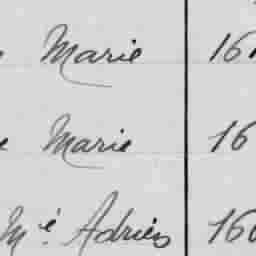 Marie 16
Marie 16
Mié. Adrien 160